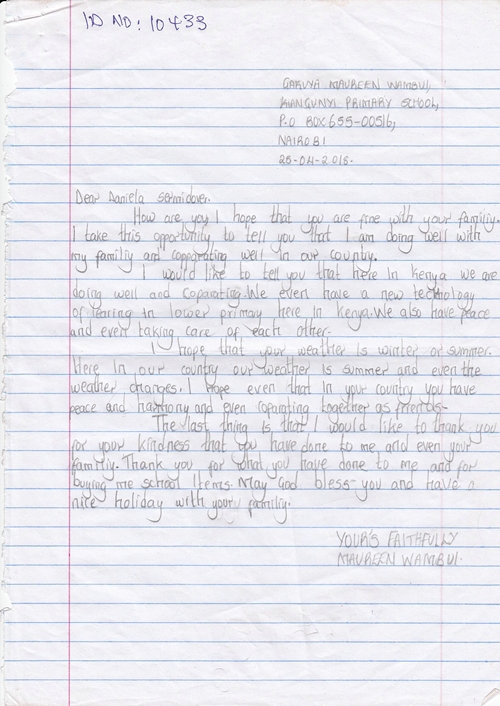 ID NO: 10433
GAKUYA MAUREEN WAMBUI,
KIANGUNYI PRIMARY SCHOOL,
P.O BOX 655-00516,
NAIROBI
25-04-2018.
Dear Daniela
How are you, I hope that you are fine with your familiy.
I take this opportunity to tell you that I am doing well with
my familiy and copparating well in our country.
I would like to tell you that here in kenya we are
doing well and coparating. We even have a new technology
of learing in lower primary here in Kenya. We also have peace
and even taking care of each other.
I hope that your weather is winter or summer.
Here in our country our weather is summer and even the
weather changes. I hope even that in your country you have
peace and harmony and even together as friends.
The last thing is that I would like to thank you
for your kindness that you have done to me, and even your
familiy. Thank you for what you have done to me and for
buying me school items. May God bless you and have a
nice holiday with your familiy.
YOUR'S FAITHFULLY
MAUREEN WAMBUI.